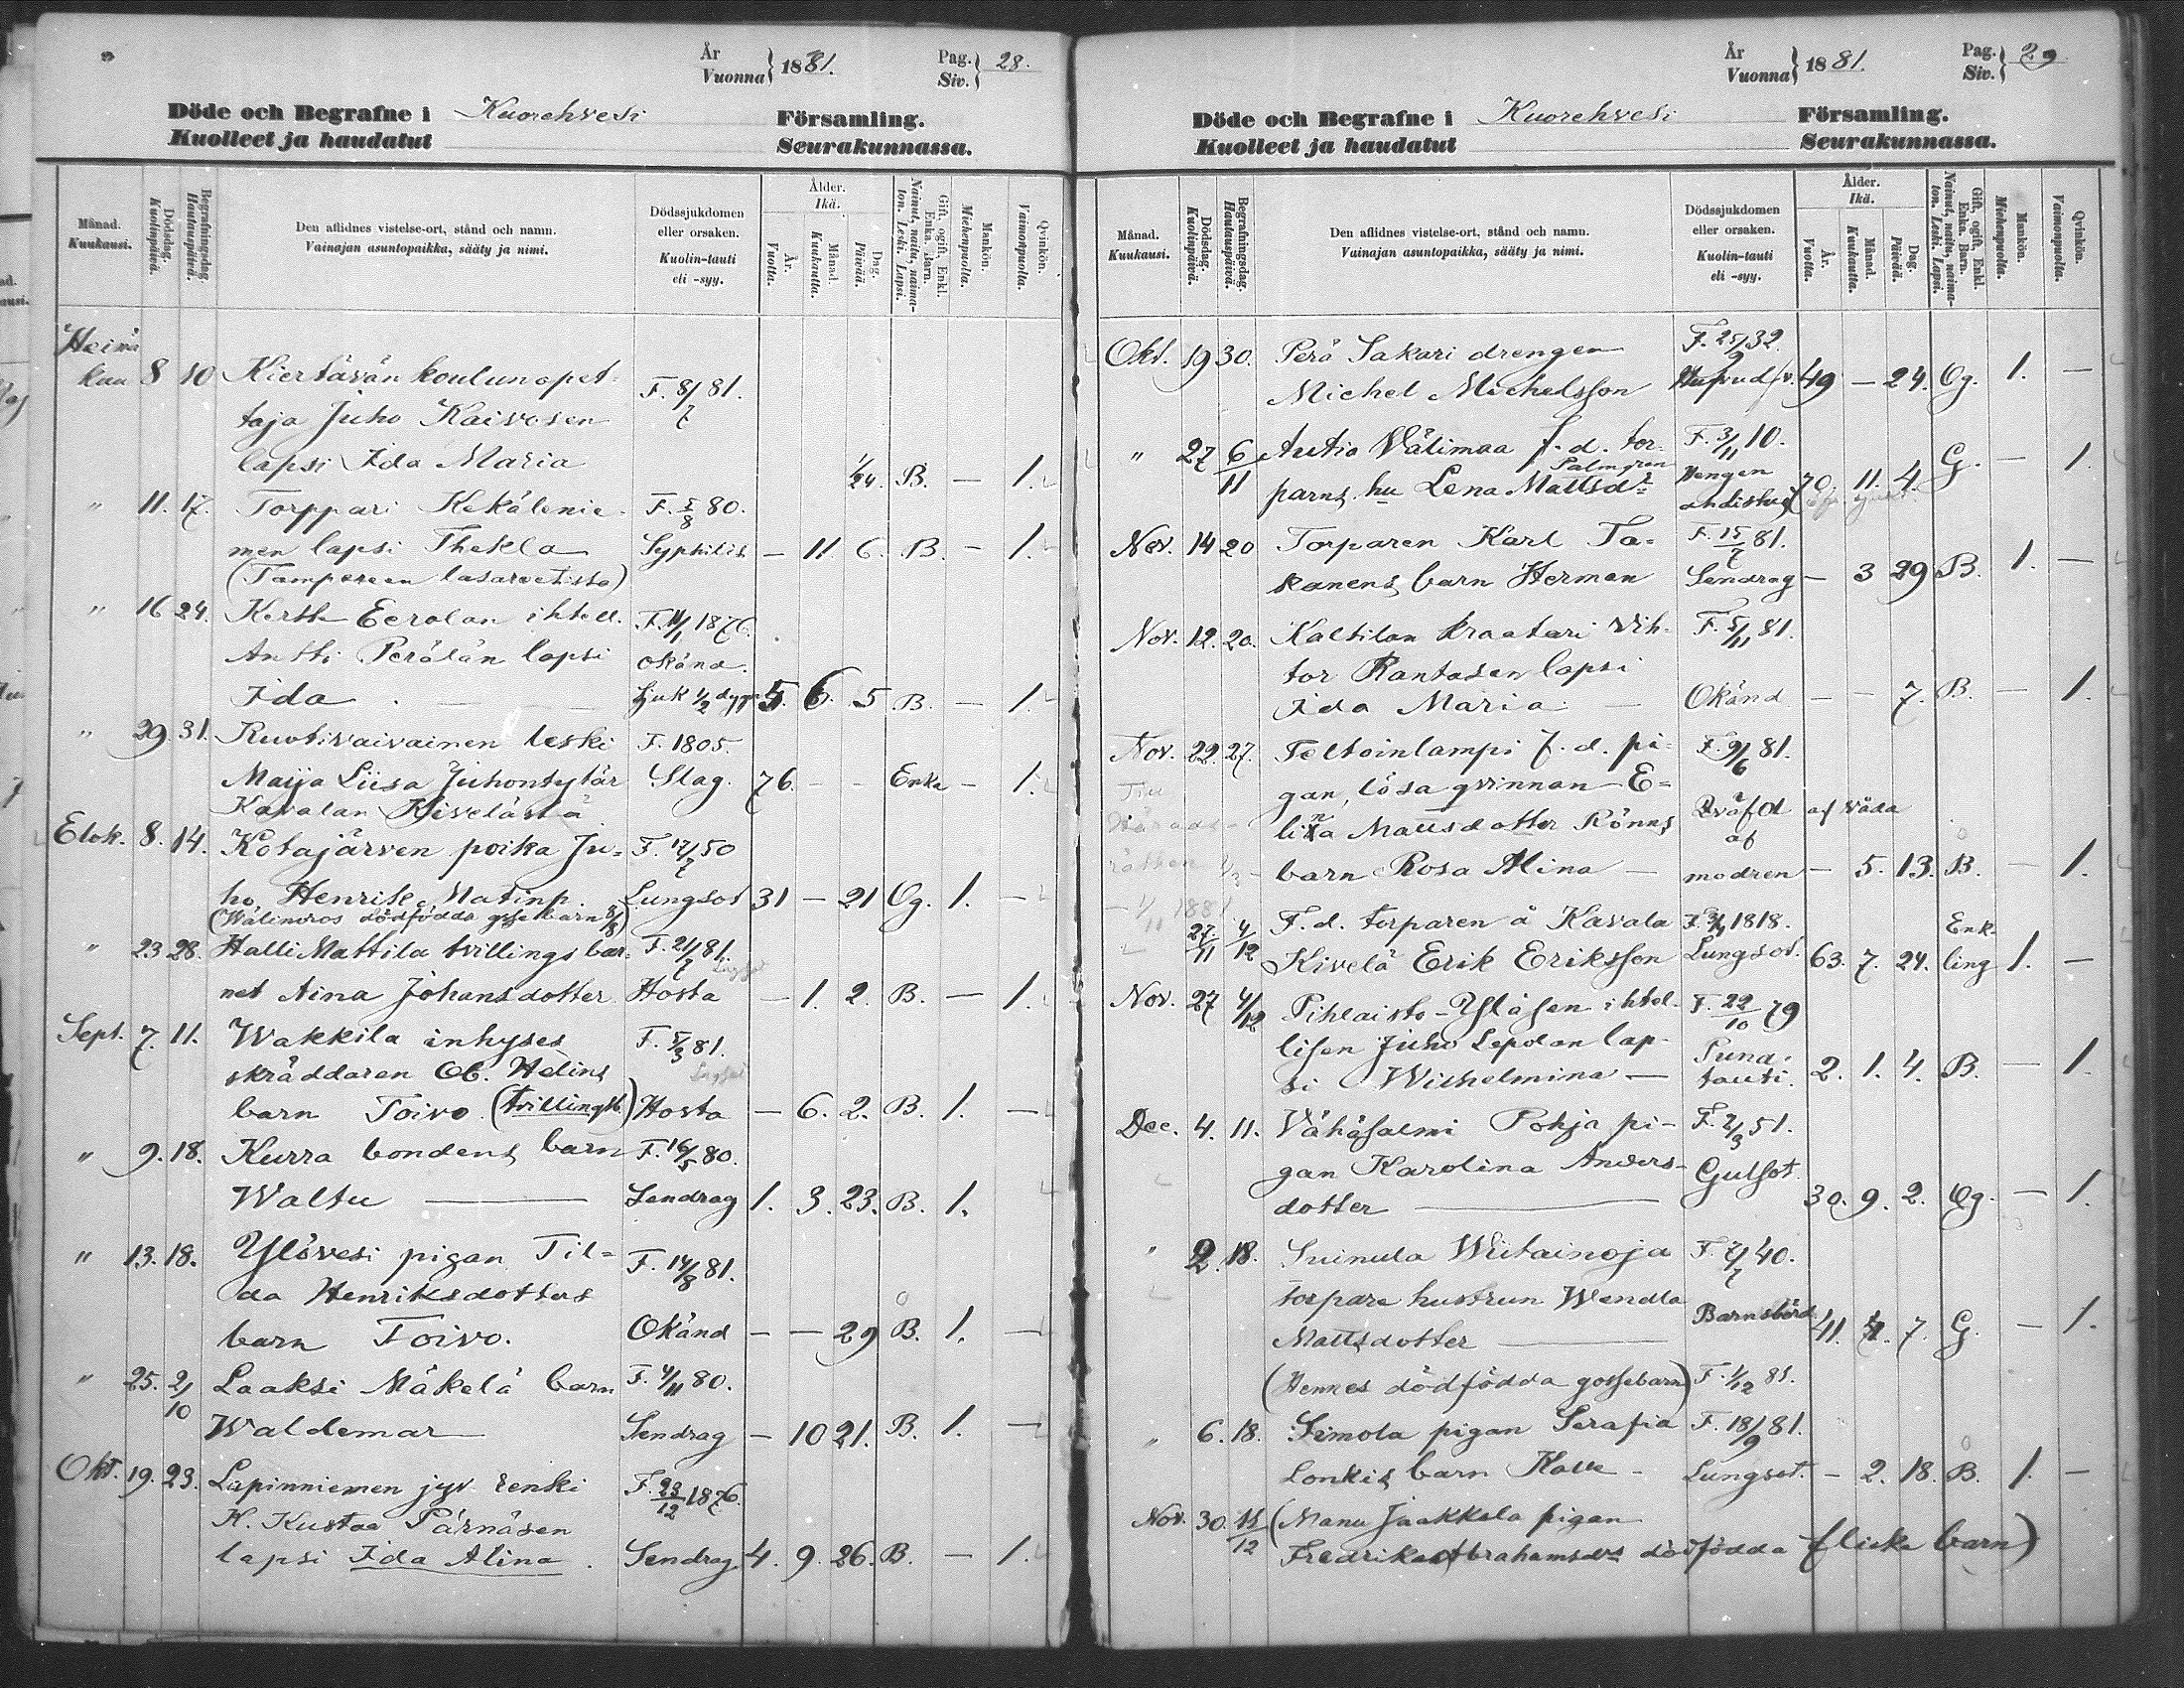 År
Vuonna } 1881.
Pag.
Siv. } 28.
Döde och Begrafne i Kuorehvesi Församling.
Kuolleet ja haudatut Seurakunnassa.
Månad. Kuukausi.
Dödsdag. Kuolinpäivä.
Begrafningsdag. Hautauspäivä.
Den aflidnes vistelse-ort, stånd och namn.
Vainajan asuntopaikka, sääty ja nimi.
Dödssjukdomen eller orsaken.
Kuolin-tauti eli -syy.
Ålder. Ikä.
År. Vuotta.
Månad. Kuukautta.
Dag. Päivää.
Gift, ogift, Enkl. Enka. Barn.
Nainut, naitu, naimaton. Leski. Lapsi.
Mankön. Miehenpuolta.
Qvinkön. Vaimonpuolta.
Heinä
kuu 8 10 Kiertävän koulunopet- F. 8/7 81.
taja Juho Kaivosen
lapsi Ida Maria 1/24. B. — 1.
" 11. 17. Torppari Kekälenie- F. 5/8 80.
men lapsi Thekla Syphilis — 11 6. B. — 1.
(Tampereen lasaretissa)
" 16 24. Kertte Eerolan ihtell. F. 11/1 1876.
Antti Perälän lapsi okänd.
Ida Sjuk 1/2 dygn 5. 6. 5 B. — 1.
" 29. 31. Ruotivaivainen leski F. 1805.
Maija Liisa Juhontytär Slag. 76. - - Enka — 1.
Kavalan Kivelästä
Elok. 8. 14. Kotajärven poika Ju- F. 17/7 50
ho Henrik Matinp. Lungsot 31 — 21 Og. 1. —
dödfödda gossebarn 8/8)
" 23 28. Halli Mattila tvillings bar- F. 21/7 81.
net Nina Johansdotter Hosta — 1. 2. B. — 1.
Sept. 7. 11. Wakkila inhyses F. 5/3 81.
skräddaren Ob. Helins
barn Toivo. (tvillingb.) Hosta — 6. 2. B. 1. —
" 9. 18. Kurra bondens barn F. 16/5 80.
Waltu — Sendrag 1. 3. 23. B. 1.
" 13. 18. Ylövesi pigan Til- F. 14/8 81.
da Henriksdotters
barn Toivo. Okänd — — 29 B. 1. —
" 25. 2/10 Laaksi Mäkelä barn F. 4/11 80.
Waldemar Sendrag — 10 21. B. 1. —
Okt. 19. 23. Lapinniemen jyv. renki F. 23/12 1876.
K. Kustaa Pärnäsen
lapsi Ida Alina. Sendrag 4. 9. 26. B. — 1.
År
Vuonna } 1881.
Pag.
Siv. } 29
Döde och Begrafne i Kuorehvesi Församling.
Kuolleet ja haudatut Seurakunnassa.
Månad. Kuukausi.
Dödsdag. Kuolinpäivä.
Begrafningsdag. Hautauspäivä.
Den aflidnes vistelse-ort, stånd och namn.
Vainajan asuntopaikka, sääty ja nimi.
Dödssjukdomen eller orsaken.
Kuolin-tauti eli -syy.
Ålder. Ikä.
År. Vuotta.
Månad. Kuukautta.
Dag. Päivää.
Gift, ogift, Enkl. Enka. Barn.
Nainut, naitu, naimaton. Leski. Lapsi.
Mankön. Miehenpuolta.
Qvinkön. Vaimonpuolta.
Okt. 19 30. Perä Sakari drengen F. 25/9 32.
Michel Michelsson Hufvudv. 49 — 24. Og. 1. —
" 27 6/11 Autio Välimaa f.d. tor- F. 3/11 10.
Palmgren
parns hu Lena Mattsdr 70. 11. 4. G. — 1.
Nov. 14 20 Torparen Karl Ta- F. 15/7 81.
kanens barn Herman Sendrag — 3 29 B. 1. —
Nov. 12. 20. Kaltilan kraatari Wih- F. 5/11 81.
tor Rantasen lapsi
Ida Maria — Okänd — — 7. B. — 1.
Nov. 22. 27. Teltoinlampi f.d. pi- F. 9/6 81.
gan, lösa qvinnan E-
lina Mattsdotter Rönns Qväfd af våda
af
barn Rosa Alina — modren — 5. 13. B. — 1.
27/11 4/12 F.d. torparen å Kavala F. 3/4 1818. Enk-
Kivelä Erik Eriksson Lungsot. 63. 7. 24. ling 1. —
Nov. 27 4/12 Pihlaisto-Yläsen ihtel- F. 22/10 79
lisen Juho Lepolan lap- Puna-
si Wilhelmina — tauti. 2. 1. 4. B. — 1.
Dec. 4. 11. Vähäsalmi Pohja pi- F. 2/3 51.
gan Karolina Anders- Gulsot.
dotter — 30. 9. 2. Og. — 1.
" 2. 18. Suinula Wiitainoja F. 7/7 40.
torpare hustrun Wendla Barnsbörd
Mattsdotter — 41. 4. 7. G. — 1.
(Hennes dödfödda gossebarn) F. 1/12 81.
" 6. 18. Simola pigan Serafia F. 18/9 81.
Lonkis barn Kalle — Lungsot. — 2. 18. B. 1. —
Nov. 30. 11/12 (Manu Jaakkola pigan
Fredrika Abrahamsdrs dödfödda flicke barn)